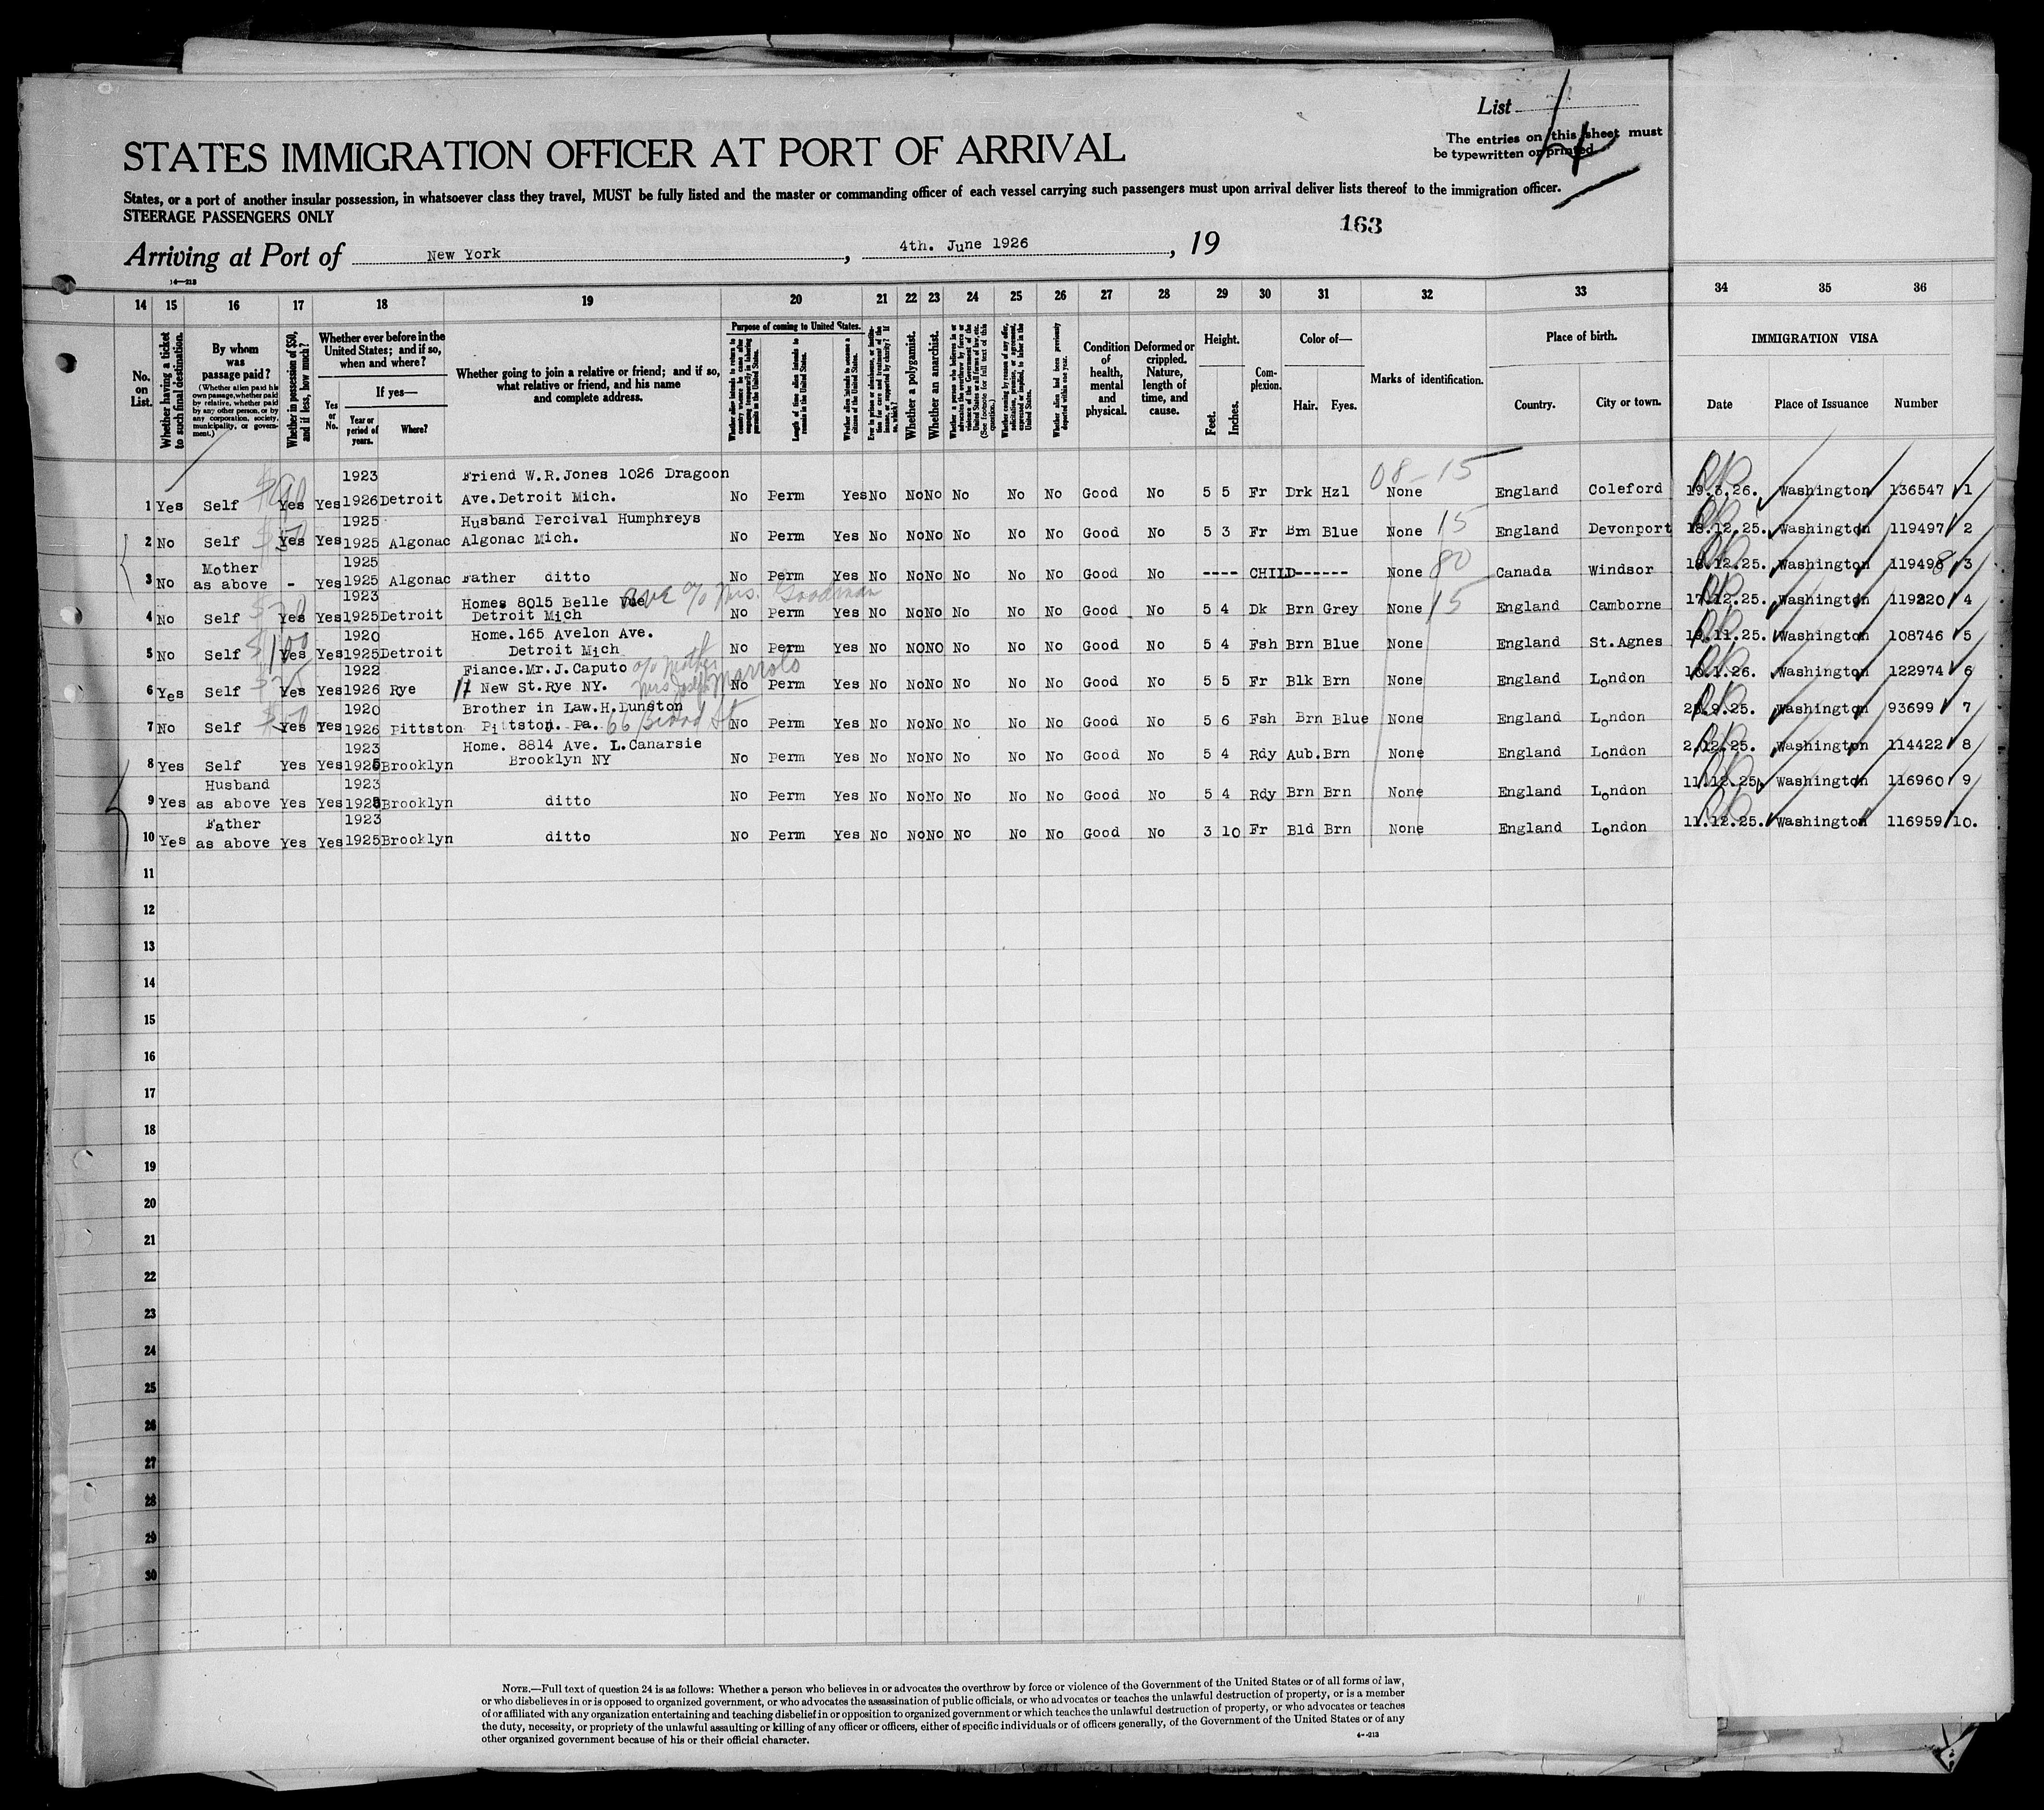 List
The entries on this sheet must
be typewritten or printed
4
STATES IMMIGRATION OFFICER AT PORT OF ARRIVAL
States, or a port of another insular possession, in whatsoever class they travel, MUST be fully listed and the master or commanding officer of each vessel carrying such passengers must upon arrival deliver lists thereof to the immigration officer.
STEERAGE PASSENGERS ONLY
163
Arriving at Port of New York, 4th. June 1926, 19
14—213
14 15 16 17 18 19 20 21 22 23 24 25 26 27 28 29 30 31 32 33 34 35 36
No. on List.
Whether having a ticket to such final destination.
By whom was passage paid?
(Whether alien paid his own passage, whether paid by relative, whether paid by any other person, or by any corporation, society, municipality, or government.)
Whether in possession of $50, and if less, how much?
Whether ever before in the United States; and if so, when and where?
Yes or No.
If yes—
Year or period of years.
Where?
Whether going to join a relative or friend; and if so, what relative or friend, and his name and complete address.
Purpose of coming to United States.
Length of time alien intends to remain in the United States.
Whether alien intends to become a citizen of the United States.
Whether a polygamist.
Whether an anarchist.
Whether alien had been previously deported within one year.
Condition of health, mental and physical.
Deformed or crippled. Nature, length of time, and cause.
Height.
Feet.
Inches.
Complexion.
Color of—
Hair. Eyes.
Marks of identification.
Place of birth.
Country. City or town.
IMMIGRATION VISA
Date Place of Issuance Number
08-15
1923 Friend W.R.Jones 1026 Dragoon
1 Yes Self Yes Yes 1926 Detroit Ave.Detroit Mich. No Perm Yes No No No No No No Good No 5 5 Fr Drk Hzl None England Coleford 19.3.26. Washington 136547 1
1925 Husband Percival Humphreys
2 No Self $50 Yes Yes 1925 Algonac Algonac Mich. No Perm Yes No No No No No No Good No 5 3 Fr Brn Blue None 15 England Devonport 18.12.25. Washington 119497 2
Mother 1925
3 No as above - Yes 1925 Algonac Father ditto No Perm Yes No No No No No No Good No ---- CHILD------ None 80 Canada Windsor 18.12.25. Washington 119498 3
1923 Homes 8015 Belle Vue Ave c/o Mrs. Goodman
4 No Self Yes Yes 1925 Detroit Detroit Mich No Perm Yes No No No No No No Good No 5 4 Dk Brn Grey None 15 England Camborne 17.12.25. Washington 119220 4
1920 Home.165 Avelon Ave.
5 No Self $100 Yes Yes 1925 Detroit Detroit Mich No Perm Yes No No No No No No Good No 5 4 Fsh Brn Blue None England St.Agnes 19.11.25. Washington 108746 5
1922 Fiance.Mr.J.Caputo c/o Mother
6 Yes Self Yes Yes 1926 Rye 11 New St.Rye NY. Mrs Marrolo No Perm Yes No No No No No No Good No 5 5 Fr Blk Brn None England London 16.1.26. Washington 122974 6
1920 Brother in Law.H.Dunston
7 No Self $50 Yes Yes 1926 Pittston Pittston. Pa. 66 Broad St No Perm Yes No No No No No No Good No 5 6 Fsh Brn Blue None England London 9.25. Washington 93699 7
1923 Home. 8814 Ave. L.Canarsie
8 Yes Self Yes Yes 1925 Brooklyn Brooklyn NY No Perm Yes No No No No No No Good No 5 4 Rdy Aub.Brn None England London 2.12.25. Washington 114422 8
Husband 1923
9 Yes as above Yes Yes 1925 Brooklyn ditto No Perm Yes No No No No No No Good No 5 4 Rdy Brn Brn None England London 11.12.25. Washington 116960 9
Father 1923
10 Yes as above Yes Yes 1925 Brooklyn ditto No Perm Yes No No No No No No Good No 3 10 Fr Bld Brn None England London 11.12.25. Washington 116959 10.
11
12
13
14
15
16
17
18
19
20
21
22
23
24
25
26
27
28
29
30
NOTE.—Full text of question 24 is as follows: Whether a person who believes in or advocates the overthrow by force or violence of the Government of the United States or of all forms of law,
or who disbelieves in or is opposed to organized government, or who advocates the assassination of public officials, or who advocates or teaches the unlawful destruction of property, or is a member
of or affiliated with any organization entertaining and teaching disbelief in or opposition to organized government or which teaches the unlawful destruction of property, or who advocates or teaches
the duty, necessity, or propriety of the unlawful assaulting or killing of any officer or officers, either of specific individuals or of officers generally, of the Government of the United States or of any
other organized government because of his or their official character.